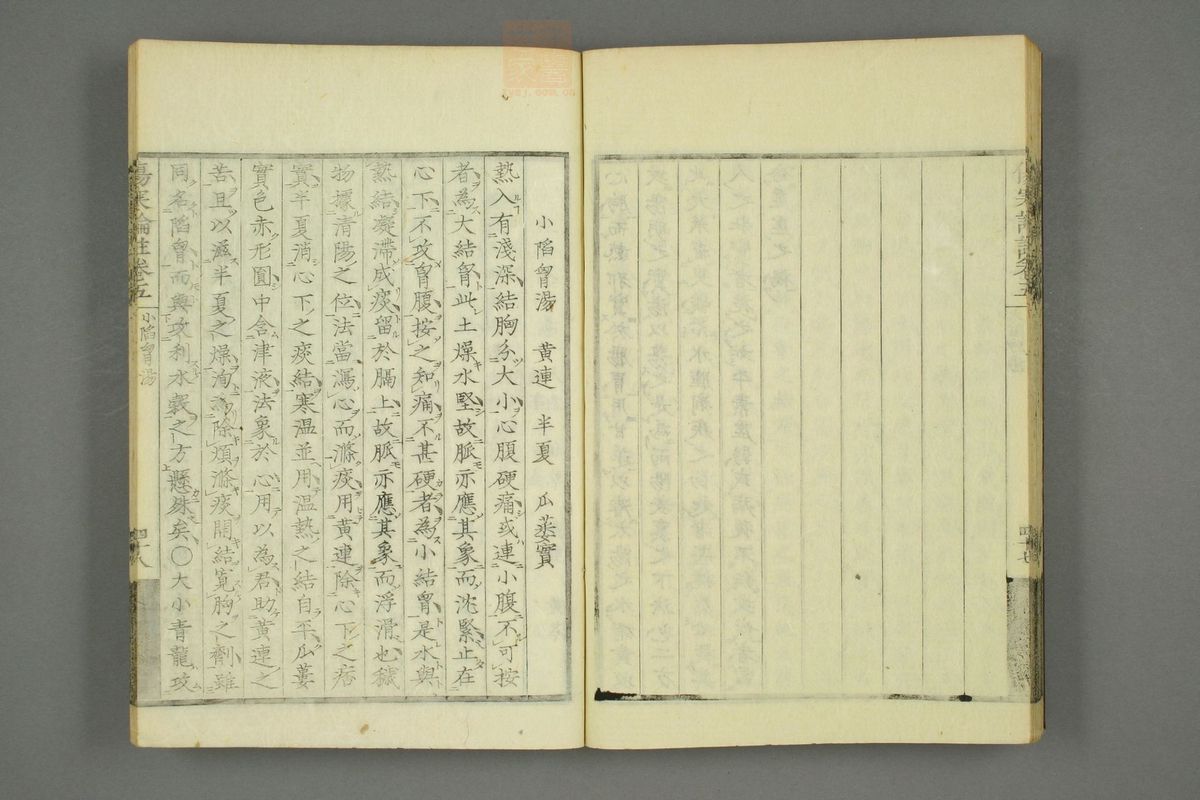 小陷胷湯 黃連 半夏 瓜蔞實
熱入有淺深結胸分大小心腹硬痛或連小腹不可按
者為大結胷此土燥水堅故脈亦應其象而沈緊止在
心下不攻胷腹按之知痛不甚硬者為小結胷是水與
熱結凝滯成痰留於膈上故脈亦應其象而浮滑也穢
物據清陽之位法當瀉心而滌痰用黃連除心下之痞
實半夏消心下之痰結寒温並用温熱之結自平瓜蔞
實色赤形圓中含津液法象於心用以為君助黃連之
苦且以滋半夏之燥洵為除煩滌痰開結寬胸之劑雖
同名陷胷而與攻利水穀之方懸殊矣〇大小青龍攻
傷寒論註卷五
小陷胷湯
四十八
四十七